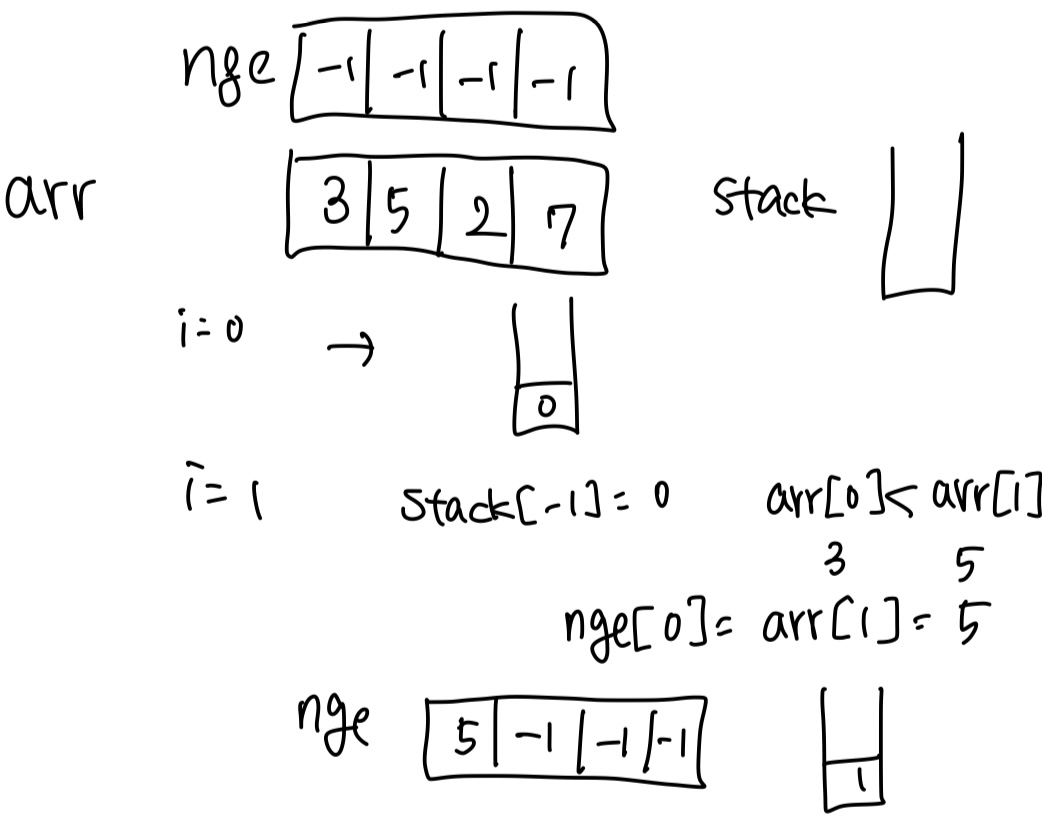 nge -1 -1 -1 -1
arr 3 5 2 7 stack
i=0 → 0
i=1 stack[-1]=0 arr[0]<arr[1]
3 5
nge[0]= arr[1]= 5
nge 5 -1 -1 -1 1